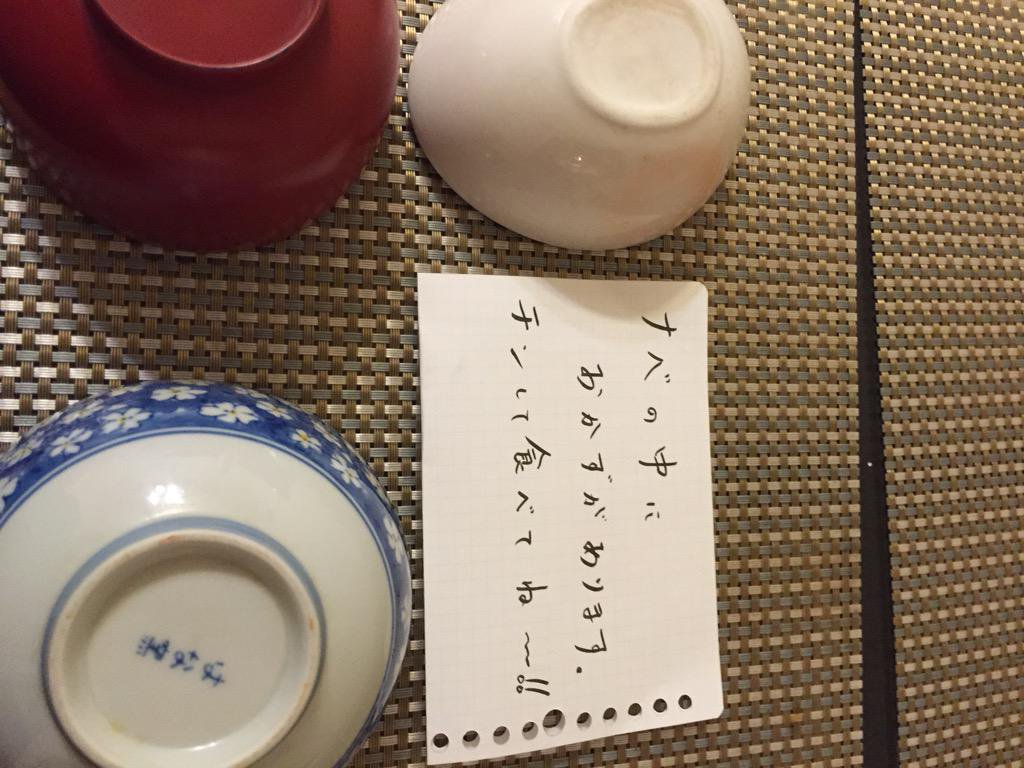 ナベの中に
おかずがあります.
チンして食べてね〜!!